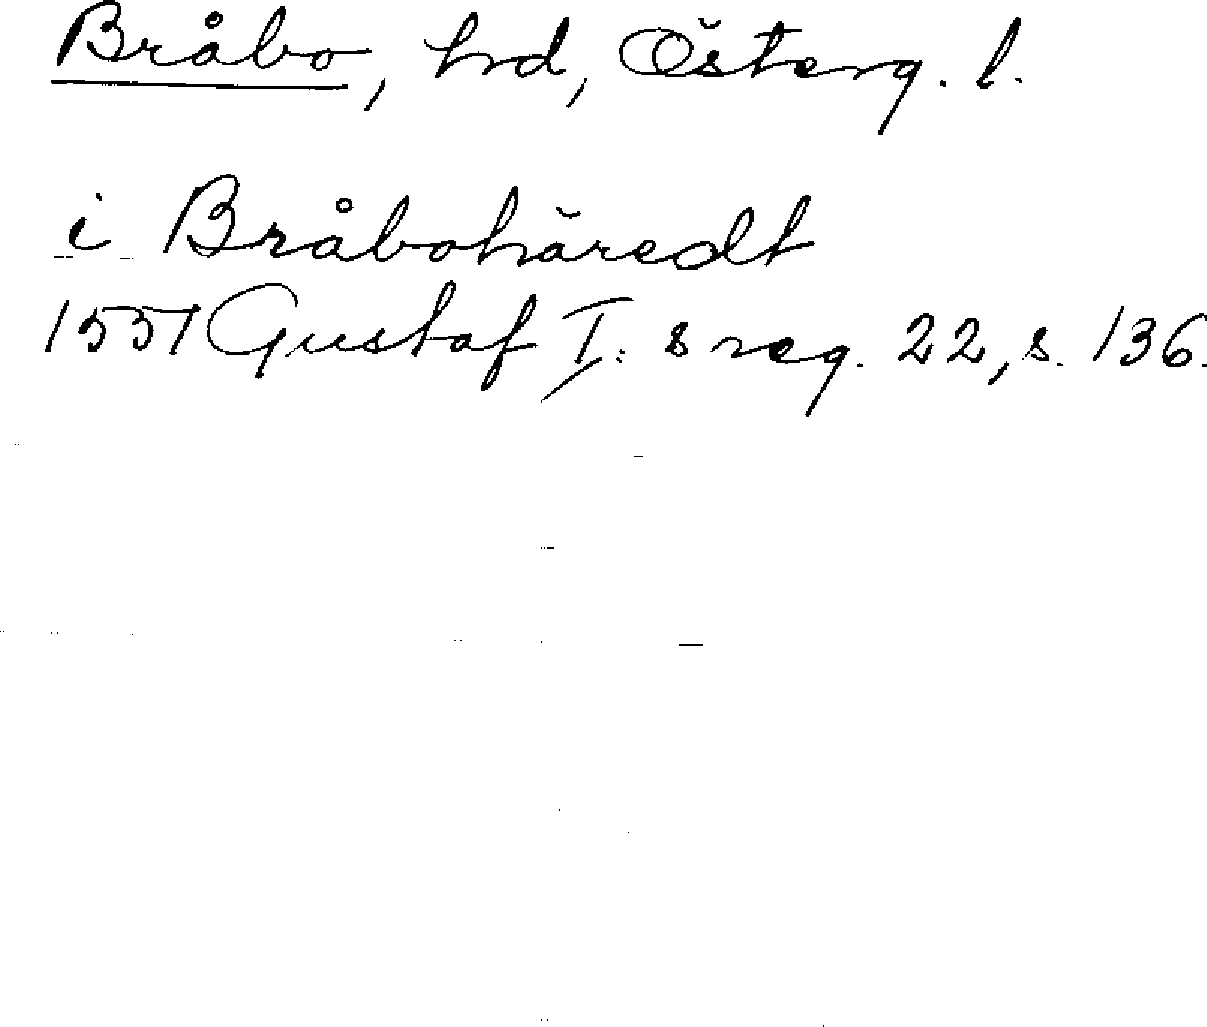 Bråbo, hrd, Österg. l.
i Bråbohäredt
1551 Gustaf I:s reg. 22, s. 136.